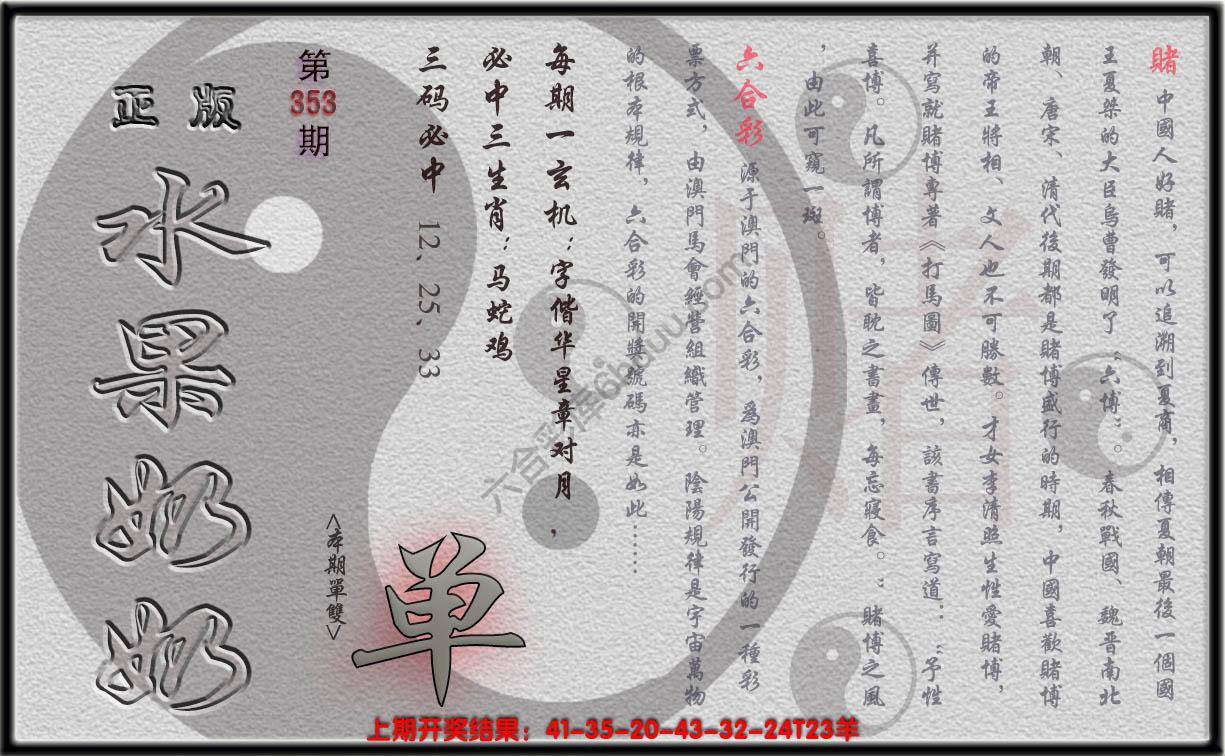 賭 中國人好賭，可以追溯到夏商，相傳夏朝最後一個國
王夏桀的大臣烏曹發明了“六博”。春秋戰國、魏晋南北
朝、唐宋、清代後期都是賭博盛行的時期，中國喜歡賭博
的帝王將相、文人也不可勝數。才女李清照生性愛賭博，
并寫就賭博專著《打馬圖》傳世，該書序言寫道：“予性
喜博。凡所謂博者，皆耽之晝晝，每忘寢食。”賭博之風
，由此可窺一斑。
六合彩 源于澳門的六合彩，爲澳門公開發行的一種彩
票方式，由澳門馬會經營組織管理。陰陽規律是宇宙萬物
的根本規律，六合彩的開獎號碼亦是如此……
每期一玄机：字偕华星章对月，
必中三生肖：马蛇鸡
三码必中 12、25、33
第
353
期
正版
水果奶奶
<本期單雙>
单
六合彩库6huuu.com
赌
上期开奖结果：41-35-20-43-32-24T23羊